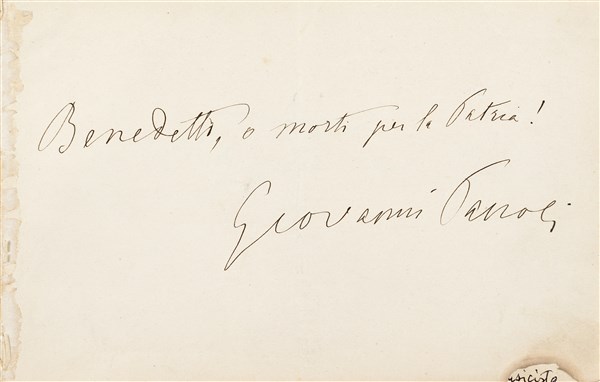 Benedetti, o morti per la Patria!
Giovanni Pascoli